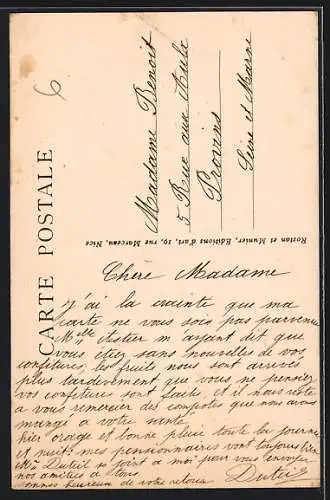 CARTE POSTALE
6
Madame Benoit
5 Rue aux Aulx
Provins
Seine et Marne
Rostan et Munier, Editions d'art, 19, rue Marceau, Nice
Chère Madame
J'ai la crainte que ma
carte ne vous sois pas parvenue
Mlle Astier m'ayant dit que
vous étiez sans nouvelles de vos
confitures, les fruits nous sont arrivés
plus tardivement que vous ne pensiez
vos confiture sont faites et il nous reste
a vous remercier des compotes que nous avons
mangé a votre santé
hier orage et bonne pluie toute la journée
et nuits mes pensionnaires vont toujours bien
Mme Duteil se joint a moi pour vous envoyer
nos amitiés a tous
heureux de votre retour Duteil